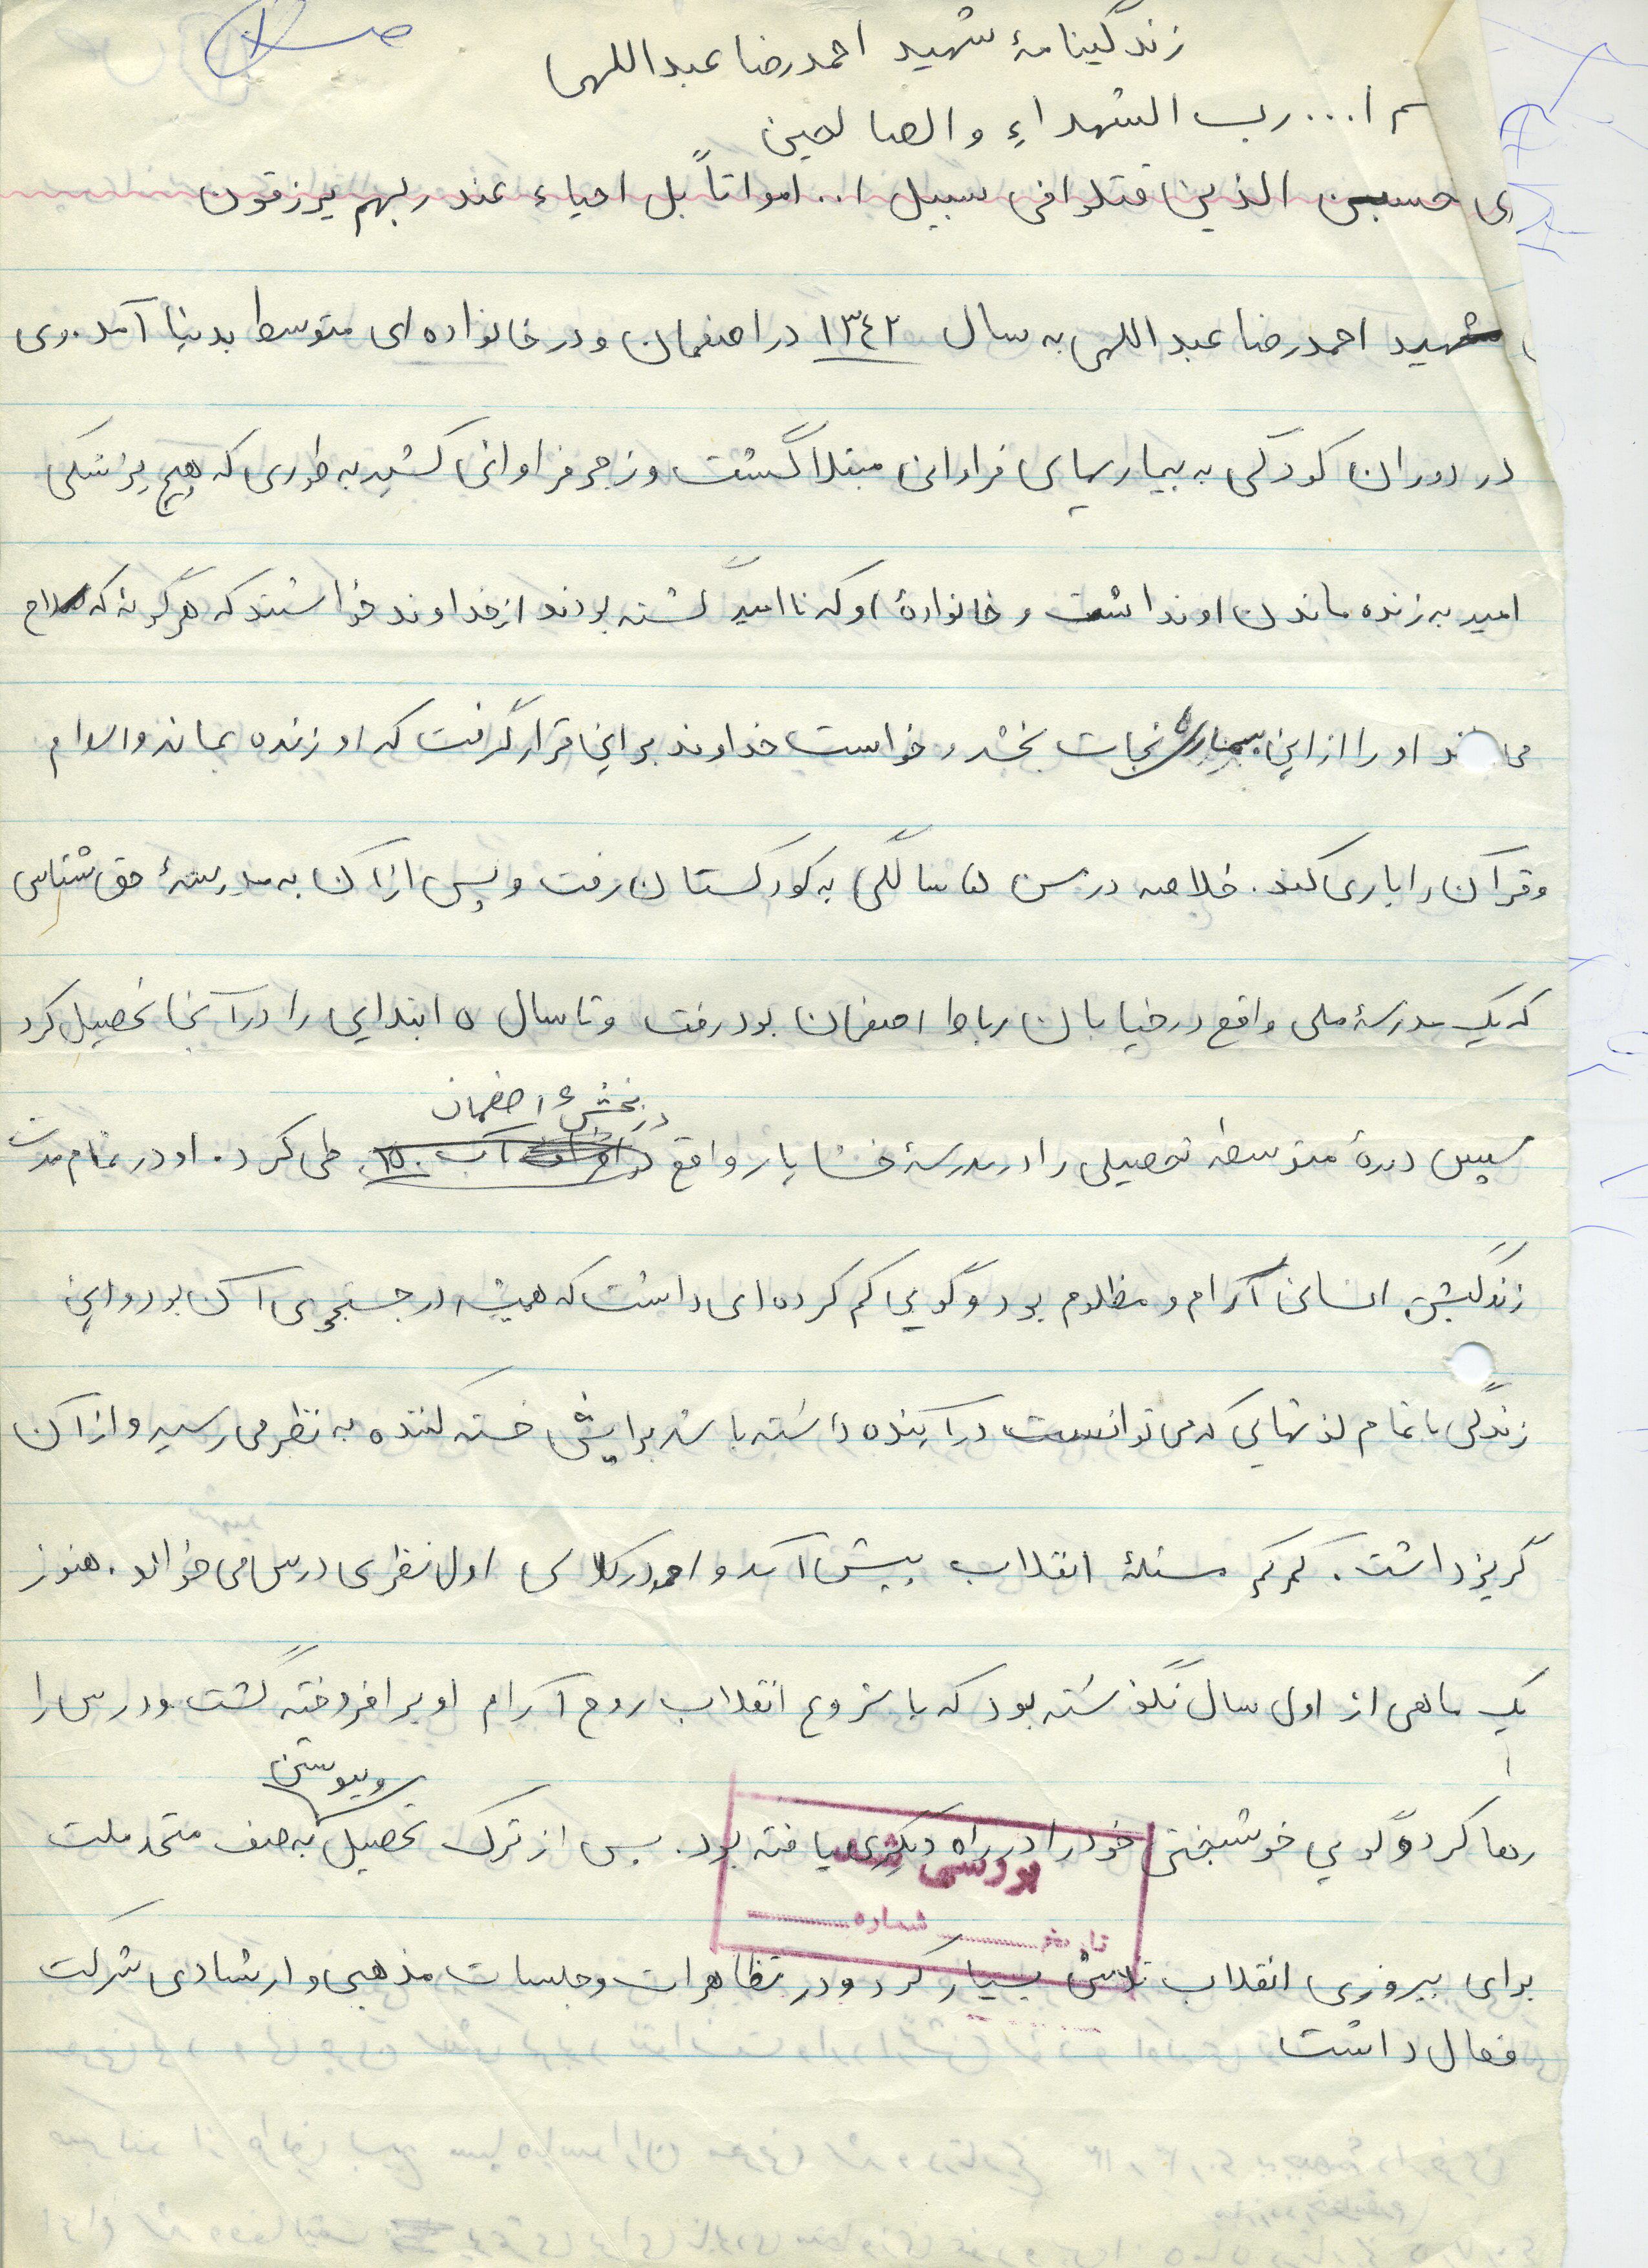 زندگینامهٔ شهید احمدرضا عبداللهی
سم ا... رب الشهداءِ و الصالحین
حسبن الذین قتلوا فی سبیل ا.. امواتاً بل احیاء عند ربهم یرزقون
شهید احمدرضا عبداللهی به سال ۱۳۴۲ در اصفهان و در خانواده ای متوسط بدنیا آمد. وی
در دوران کودکی به بیماریهای فراوانی مبتلا گشت و زجر فراوانی کشید به طوری که هیچ پزشکی
امید به زنده ماندن او نداشت و خانوادهٔ او که ناامید گشته بودند از خداوند خواستند که هرگونهٔ که صلاح
او را از این بیماری نجات بخشد و خواست خداوند بر این قرار گرفت که او زنده بماند و اسلام
و قرآن را یاری کند. خلاصه در سن سالگی به کودکستان رفت و پس از آن به مدرسهٔ حق شناس
که یک مدرسهٔ ملی واقع در خیابان اصفهان بود رفت و تا سال ۵ ابتدایی را در آنجا تحصیل کرد
در بخش ۶ اصفهان
سپس دورهٔ متوسطه تحصیلی را در مدرسهٔ خشایار واقع طی کرد. او در تمام مدت
زندگیش انسانی آرام و مظلوم بود و گویی گم کرده ای داشت که همیشه در جستجوی آن بود و این
زندگی با تمام لذتهایی که می توانست در آینده داشته باشد برایش خسته کننده به نظر می رسید و از آن
گریز داشت. کم کم مسئلهٔ انقلاب پیش آمد و احمد در کلاس اول نظری درس می خواند. هنوز
یک ماهی از اول سال نگذشته بود که با شروع انقلاب روح آرام او برافروخته گشت و درس را
و پیوستن
رها کرد و گویی خوشبختی خود را در راه دیگری یافته بود. پس از ترک تحصیل به صف متحد ملت
بررسی شد
تاریخ ............ شماره ............
برای پیروزی انقلاب تلاش بسیار کرد و در تظاهرات و جلسات مذهبی و ارشادی شرکت
فعال داشت